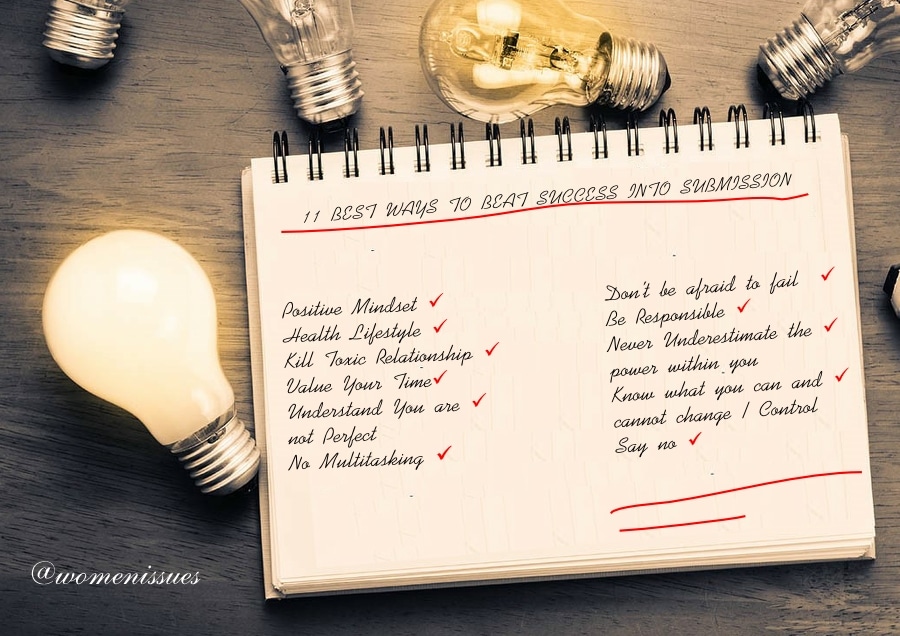 11 BEST WAYS TO BEAT SUCCESS INTO SUBMISSION
Positive Mindset
Health Lifestyle
Kill Toxic Relationship
Value Your Time
Understand You are
not Perfect
No Multitasking
Don't be afraid to fail
Be Responsible
Never Underestimate the
power within you
Know what you can and
cannot change / Control
Say no
@womenissues